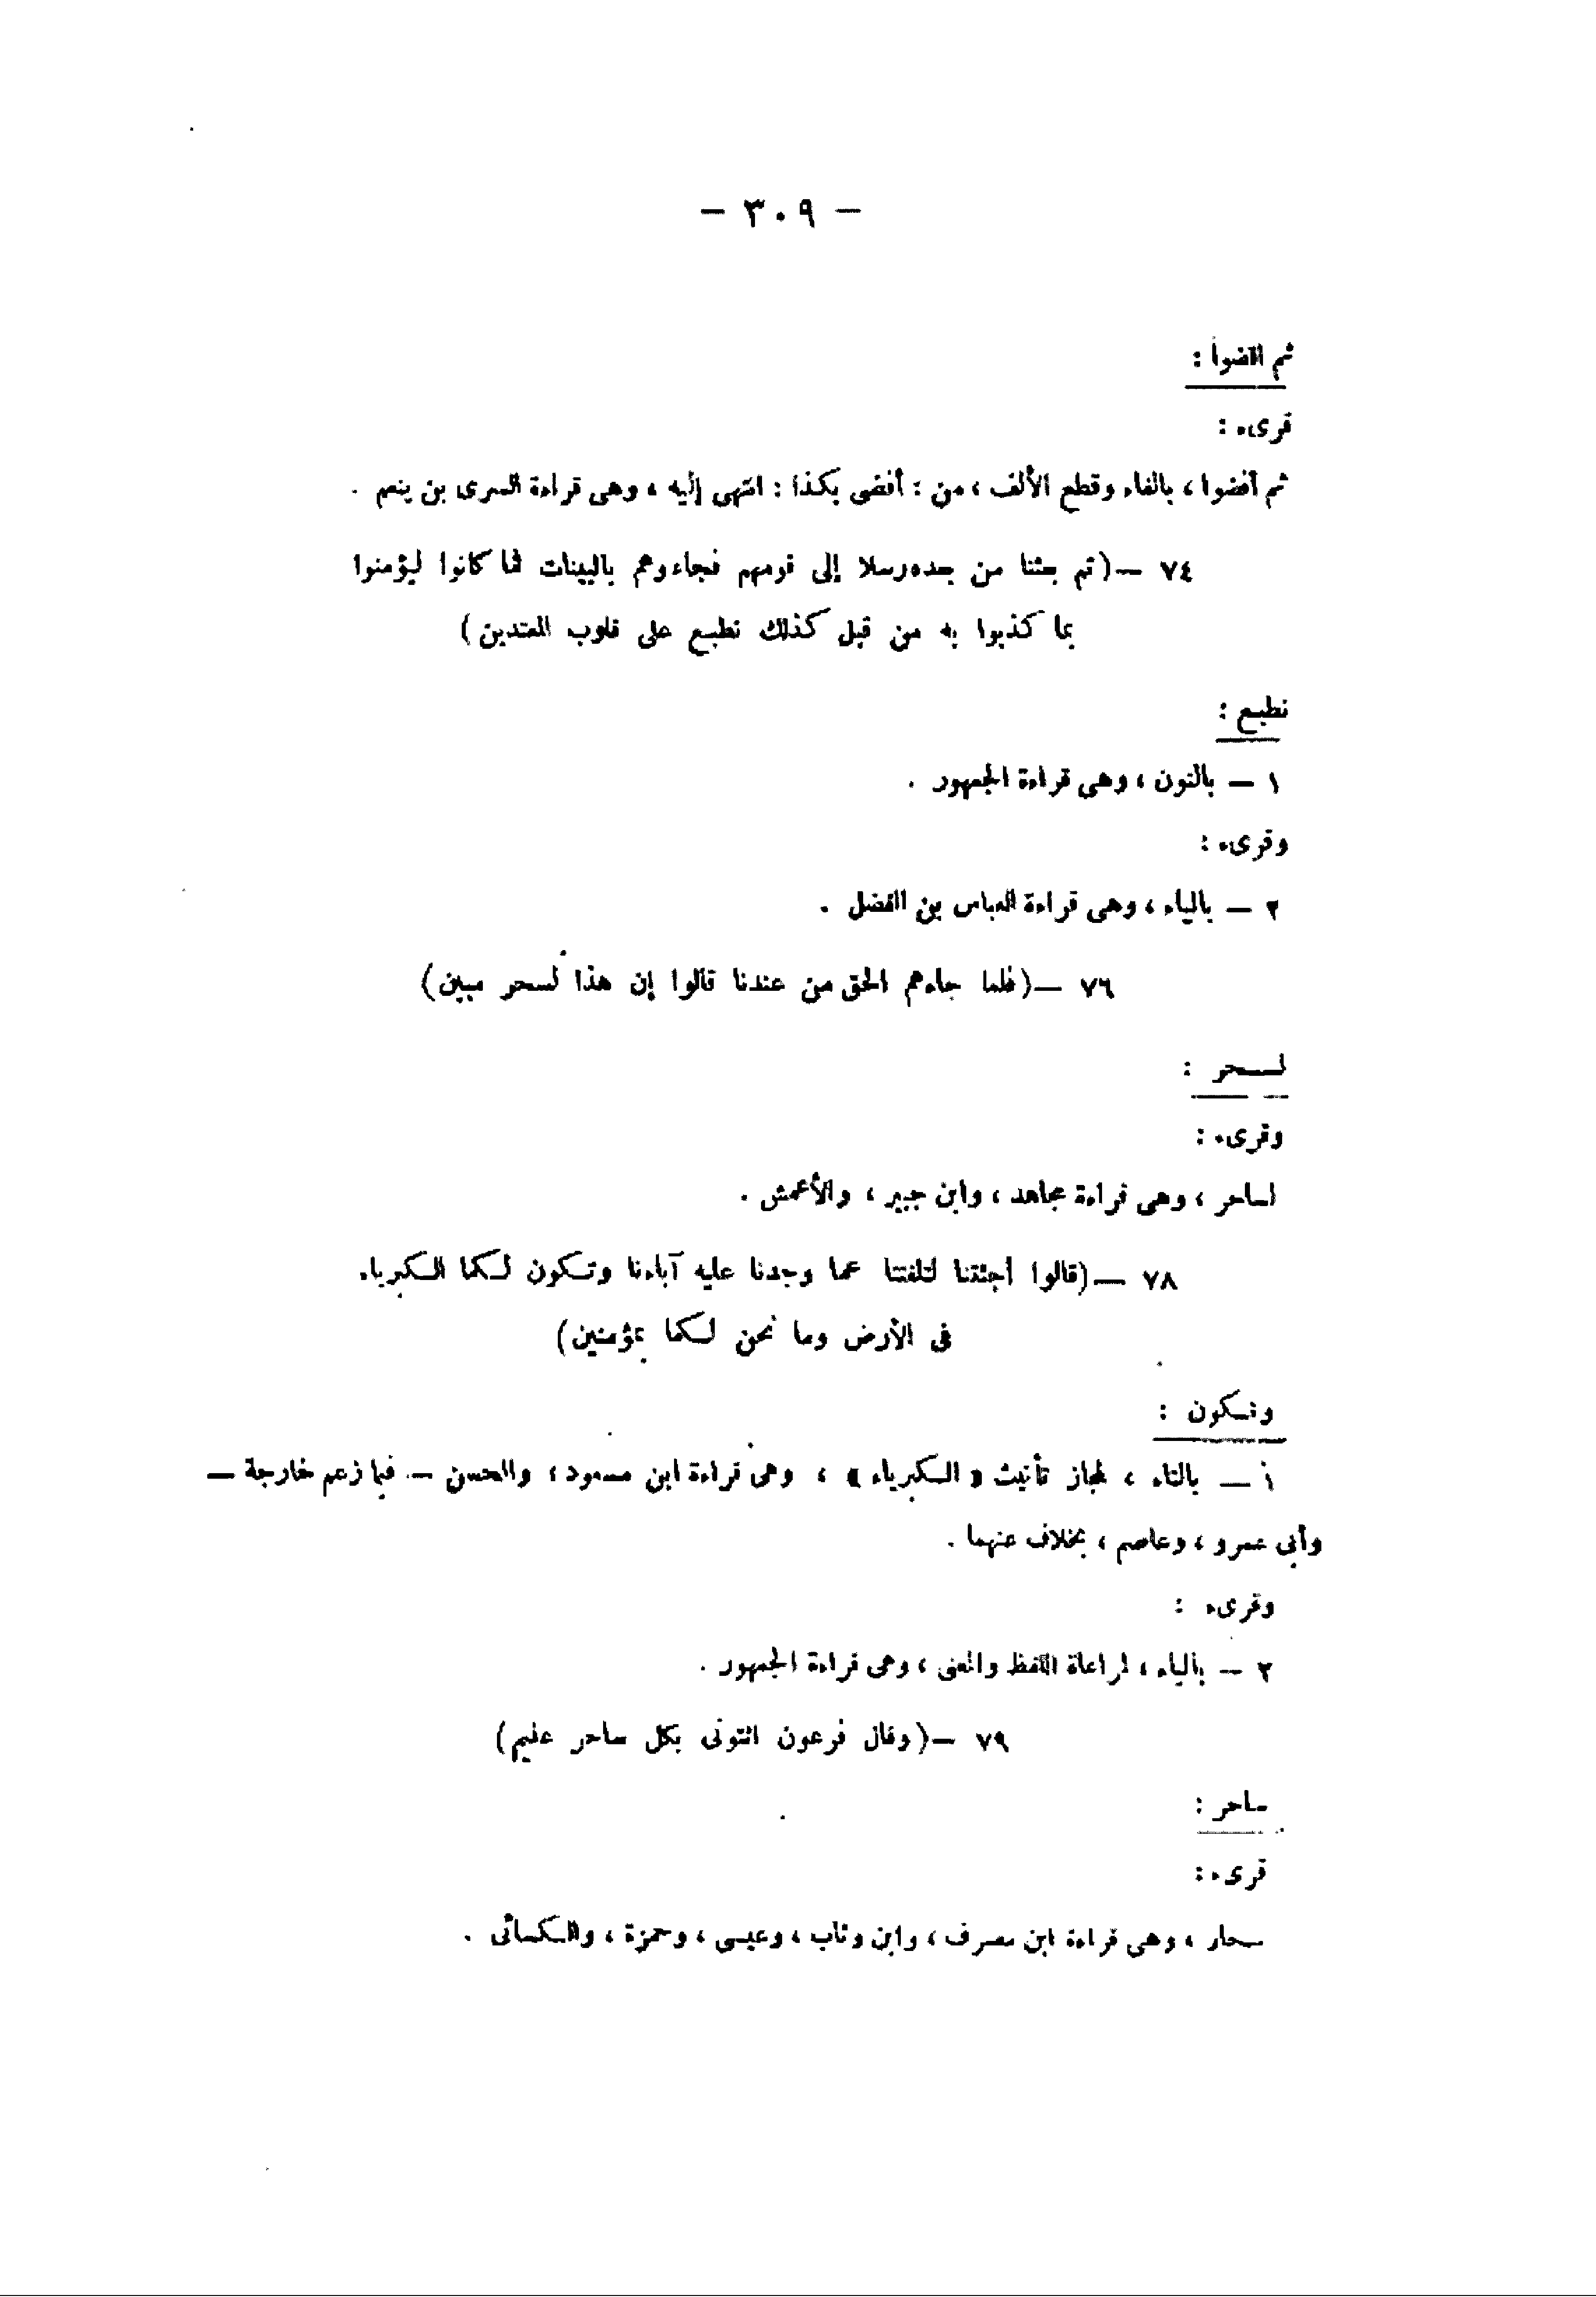 — ٣٠٩ —
ثم اقضوا :
قرىء :
ثم أفضوا ، بالفاء وقطع الألف ، من : أفضى بكذا : انتهى إليه ، وهى قراءة السرى بن ينعم .
٧٤ — (ثم بعثنا من بعده رسلا إلى قومهم فجاءوهم بالبينات فما كانوا ليؤمنوا
بما كذبوا به من قبل كذلك نطبع على قلوب المعتدين)
نطبع :
١ — بالنون ، وهى قراءة الجمهور .
وقرىء :
٢ — بالياء ، وهى قراءة العباس بن الفضل .
٧٦ — (فلما جاءهم الحق من عندنا قالوا إن هذا لسحر مبين)
لسحر :
وقرىء :
لساحر ، وهى قراءة مجاهد ، وابن جبير ، والأعمش .
٧٨ — (قالوا أجئتنا لتلفتنا عما وجدنا عليه آباءنا وتكون لكما الكبرياء
فى الأرض وما نحن لكما بمؤمنين)
وتكون :
١ — بالتاء ، لمجاز تأنيث « الكبرياء » ، وهى قراءة ابن مسعود ، والحسن — فيما زعم خارجة —
وأبى عمرو ، وعاصم ، بخلاف عنهما .
وقرىء :
٢ — بالياء ، لمراعاة اللفظ والمعنى ، وهى قراءة الجمهور .
٧٩ — (وقال فرعون ائتونى بكل ساحر عليم)
ساحر :
قرىء :
سحار ، وهى قراءة ابن مصرف ، وابن وثاب ، وعيسى ، وحمزة ، والكسائى .